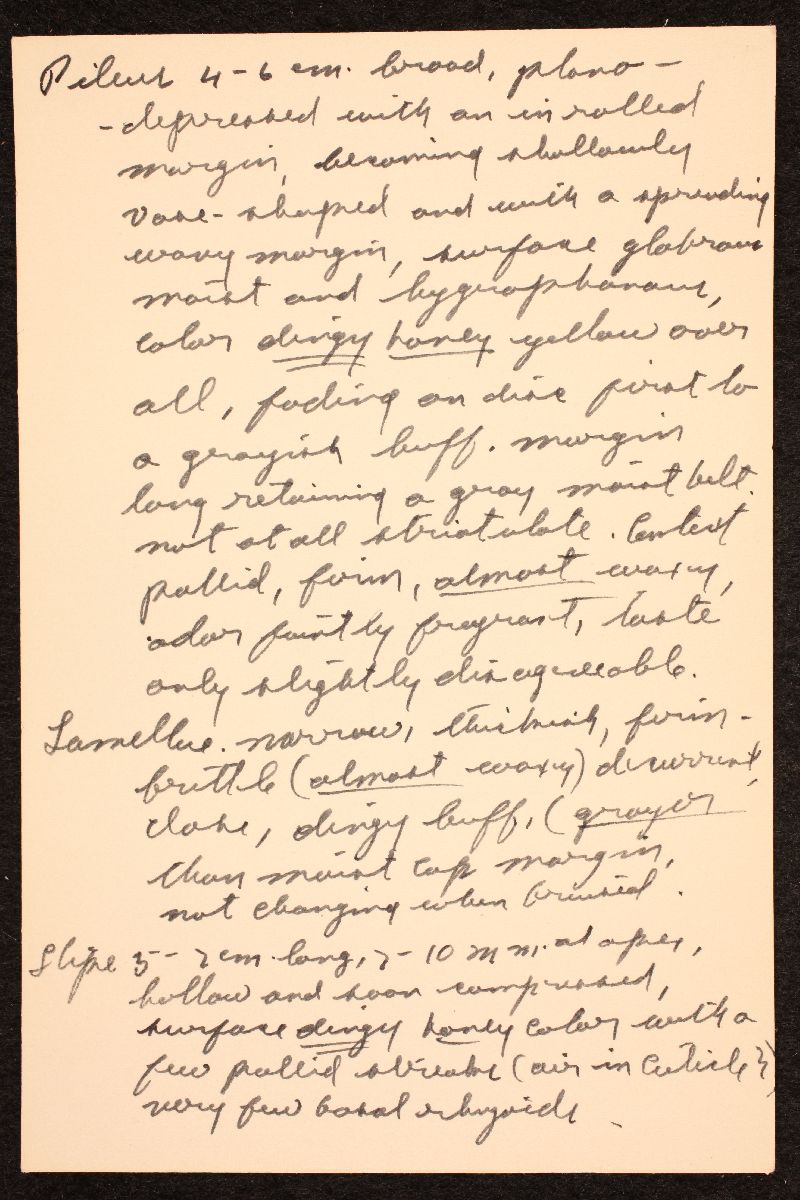 Pileus 4-6 cm. broad, plano-
-depressed with an inrolled
margin, becoming shallowly
vase-shaped and with a spreading
wavy margin, surface glabrous
moist and hygrophanous,
color dingy honey yellow over
all, fading on disc first to
a grayish buff. margin
long retaining a gray moist belt.
not at all striatulate. Context
pallid, firm, almost waxy,
odor faintly fragrant, taste
only slightly disagreeable.
Lamellae. narrow, thickish, firm-
brittle (almost waxy) decurrent,
close, dingy buff, (grayer
than moist cap margin,
not changing when bruised.
Stipe 5-7 cm. long, 7-10 mm. at apex,
hollow and soon compressed,
surface dingy honey color with a
few pallid streaks (air in cuticle?)
very few basal rhizoids.